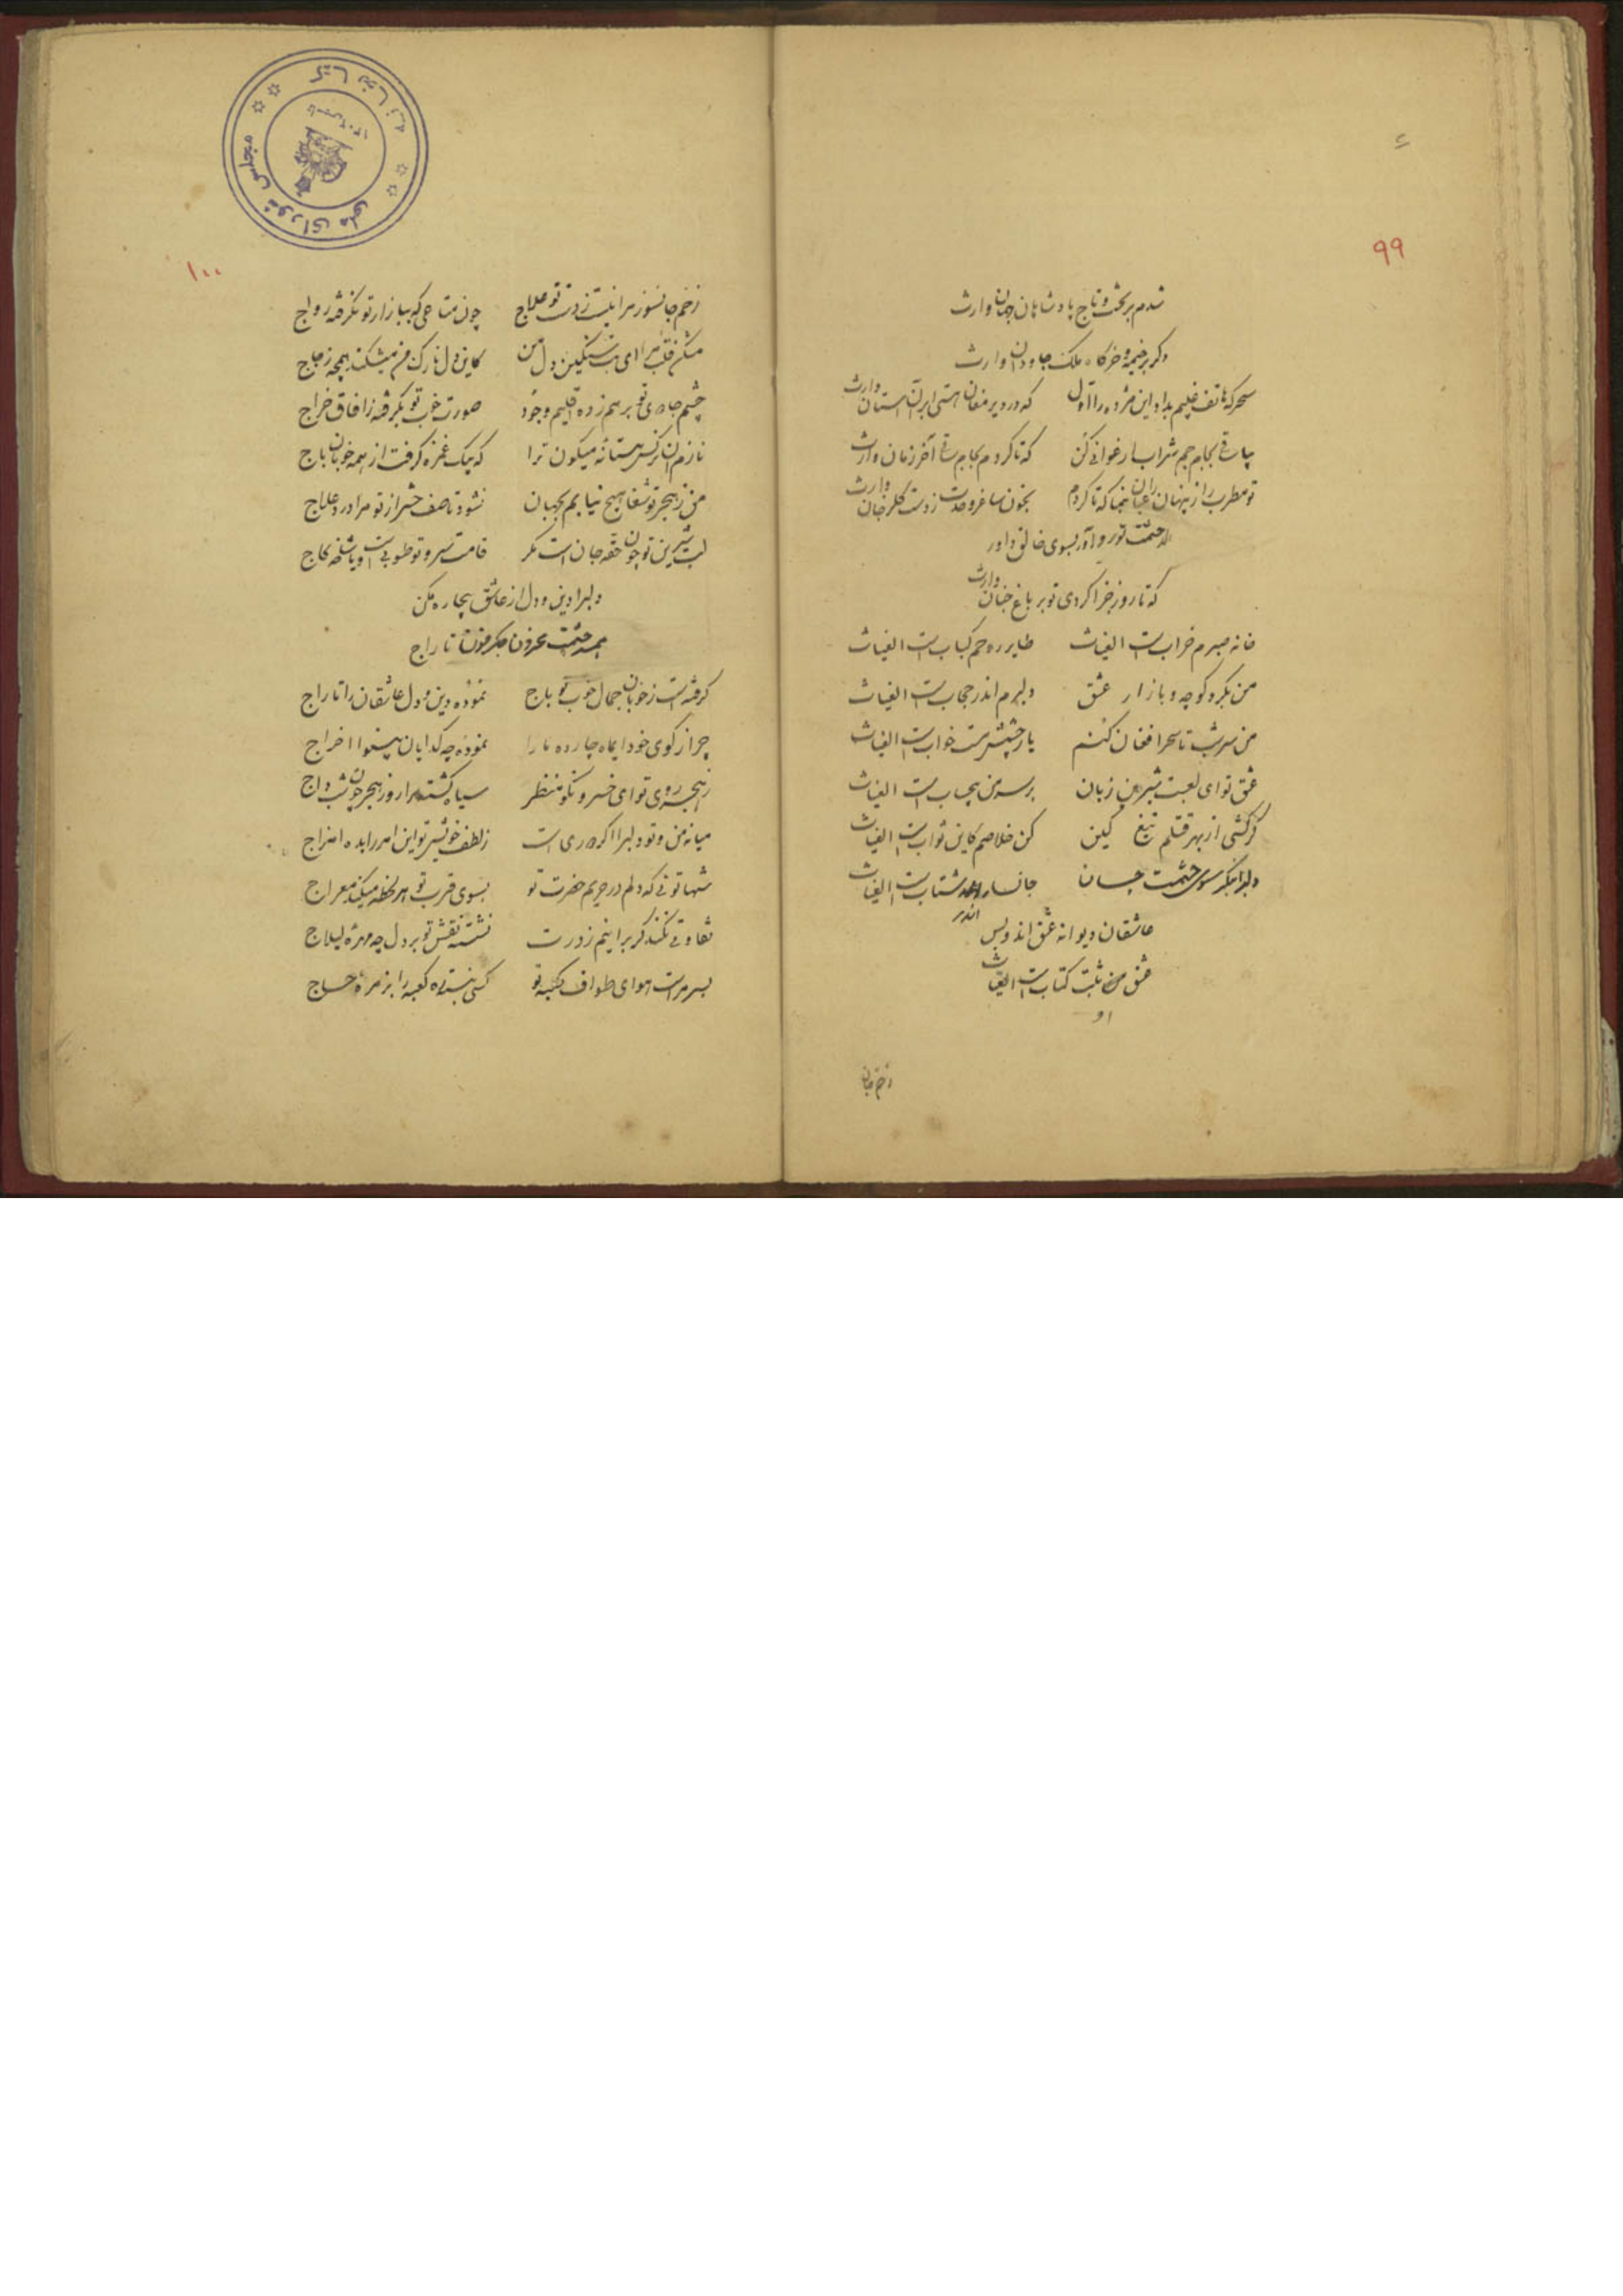 ۹۹
شدم بر تخت و تاج پادشاهان جهان وارث
دگر بر خیمه و خرگاه ملک جاودان وارث
سحرکه هاتف غلیبم بداد این مژده را اول که در دیر مغان هستی بر آن آستان وارث
بیا ساقی بجام جم شراب ارغوانی کن که تا کردم بجام ساقی آخر زمان وارث
تو مطرب راز پنهان را عیان بنما که تا کردم بخون ساغر وحدت ز دست گلرخان وارث
الا حشمت تو رو آور بسوی خالق داور
که تا روز جزا کردی تو بر باغ جنان وارث
خانه صبرم خراب است الغیاث طایر روحم کباب است الغیاث
من بگرد کوچه و بازار عشق دلبرم اندر حجاب است الغیاث
من سر شب تا سحر افغان کنم یار چشمش مست خواب است الغیاث
عشق تو ای لعبت شیرین زبان بر سر من بیحساب است الغیاث
گر کشی از بهر قتلم تیغ کین کن خلاصم کاین ثواب است الغیاث
دلبرا بنگر سوی حشمت چسان جانسپار اندر شتاب است الغیاث
عاشقان دیوانه عشق اند و بس
عشق من ثبت کتاب است الغیاث
او
زخم جان
۱۰۰
زخم جانسوز مرا نیست ز دست تو علاج چون متاعی که ببازار تو نگرفته رواج
مشکن قلب مرا ای بت سنگین دل من کاین دل نازک من میشکند همچه زجاج
چشم جادوی تو بر هم زده اقلیم وجود صورت خوب تو بگرفته ز افاق خراج
نازم آن نرگس مستانه میگون ترا که بیک غمزه گرفت از همه خوبان باج
من ز هجر تو شفا هیچ نیابم بجهان نشود تا صف حشر از تو مرا درد علاج
لب شیرین تو چون حقه جان است مگر قامت سرو تو طوبی است و یا شاخه کاج
دلبرا دین و دل از عاشق بیچاره مکن
همه حشمت محزون جگر خون تاراج
گرفته است ز خوبان جمال خوب تو باج نموده دین و دل عاشقان را تاراج
چرا ز کوی خود ایماه چارده ما را نموده چه گدایان بینوا اخراج
ز هجر روی تو ای خسرو نکو منظر سیاه گشته مرا روز همچون شب داج
میانه من و تو دلبرا اگر دوری است ز لطف خویش تو این امر را بده امزاج
شها توئی که دلم در حریم حضرت تو بسوی قرب تو هر لحظه میکند معراج
تفاوتی نکند گر برانیم ز درت نشسته نقش تو بر دل چه مهره لیلاج
بسر مراست هوای طواف کعبه تو کسی نبسته ره کعبه را بزمره حجاج
کتابخانه مجلس شورای ملی